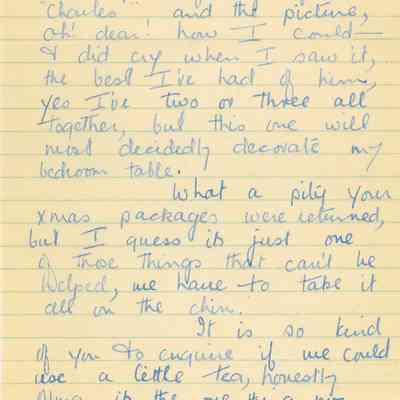 "Charles" and the picture,
oh! dear! how I could —
I did cry when I saw it,
the best I've had of him,
yes I've two or three all
together, but this one will
most decidedly decorate my
bedroom table.
What a pity your
xmas packages were returned,
but I guess its just one
of those things that can't be
helped, we have to take it
all on the chin.
It is so kind
of you to enquire if we could
use a little tea, honestly
its the one